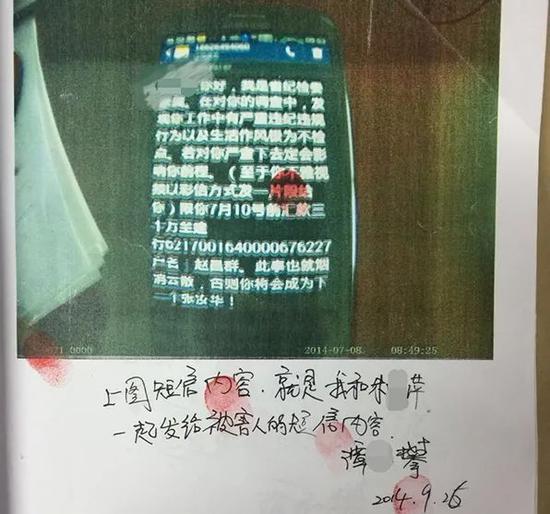 你好，我是省纪检委
在对你的调查中，发
现你工作中有严重违纪违规
行为以及生活作风极为不检
点。若对你严重下去定会影
响你前程。（至于你不雅视
频以彩信方式发一片段给
你）限你7月10号前汇款三
十万至建
行6217001640000676227
户名：赵昌群。此事也就烟
消云散，否则你将会成为下
一个张汝华！
0000
2014-07-08 08:49:25
上图短信内容，就是我和朱 萍
一起发给被害人的短信内容
谭
2014.9.26